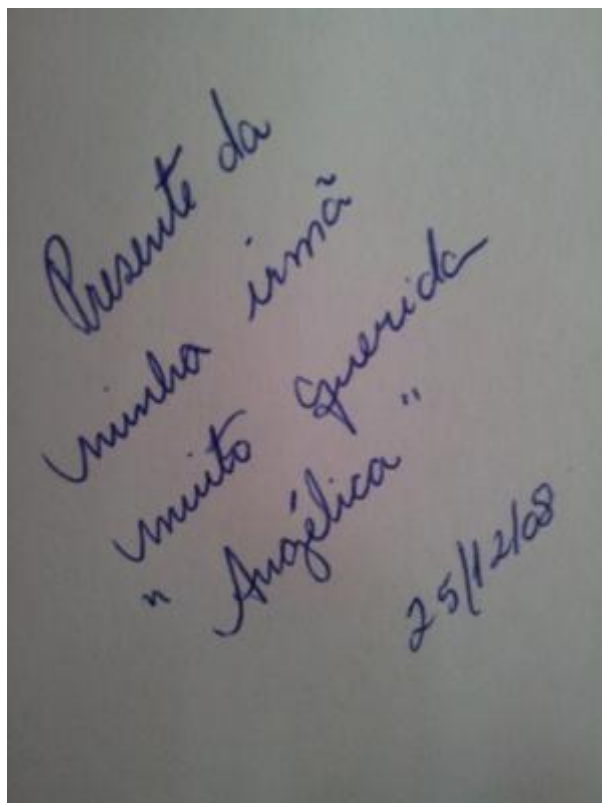 Presente da
minha irmã
muito querida
" Angélica "
25/12/08